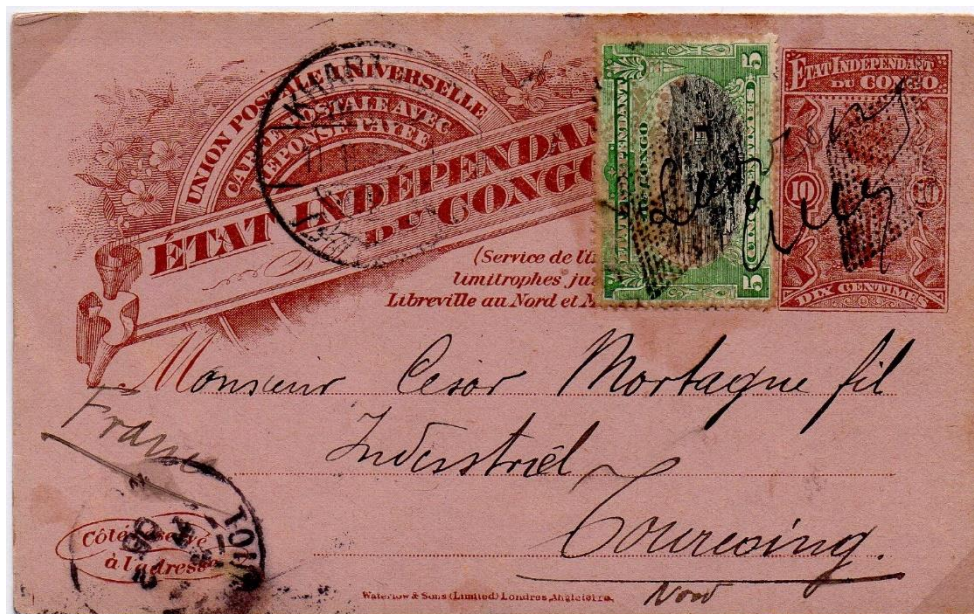 UNION POSTALE UNIVERSELLE
CARTE POSTALE AVEC
RÉPONSE PAYÉE
ÉTAT INDÉPENDANT
DU CONGO
(Service de l'
limitrophes ju
Libreville au Nord et M
ÉTAT INDÉPENDANT
DU CONGO
5 CENTIMES 5
ÉTAT INDÉPENDANT
DU CONGO
10 10
DIX CENTIMES
Monsieur Cesar Mortagne fil
Industriel
Tourcoing.
Nord
France
Côté réservé
à l'adresse
Waterlow & Sons (Limited) Londres, Angleterre.